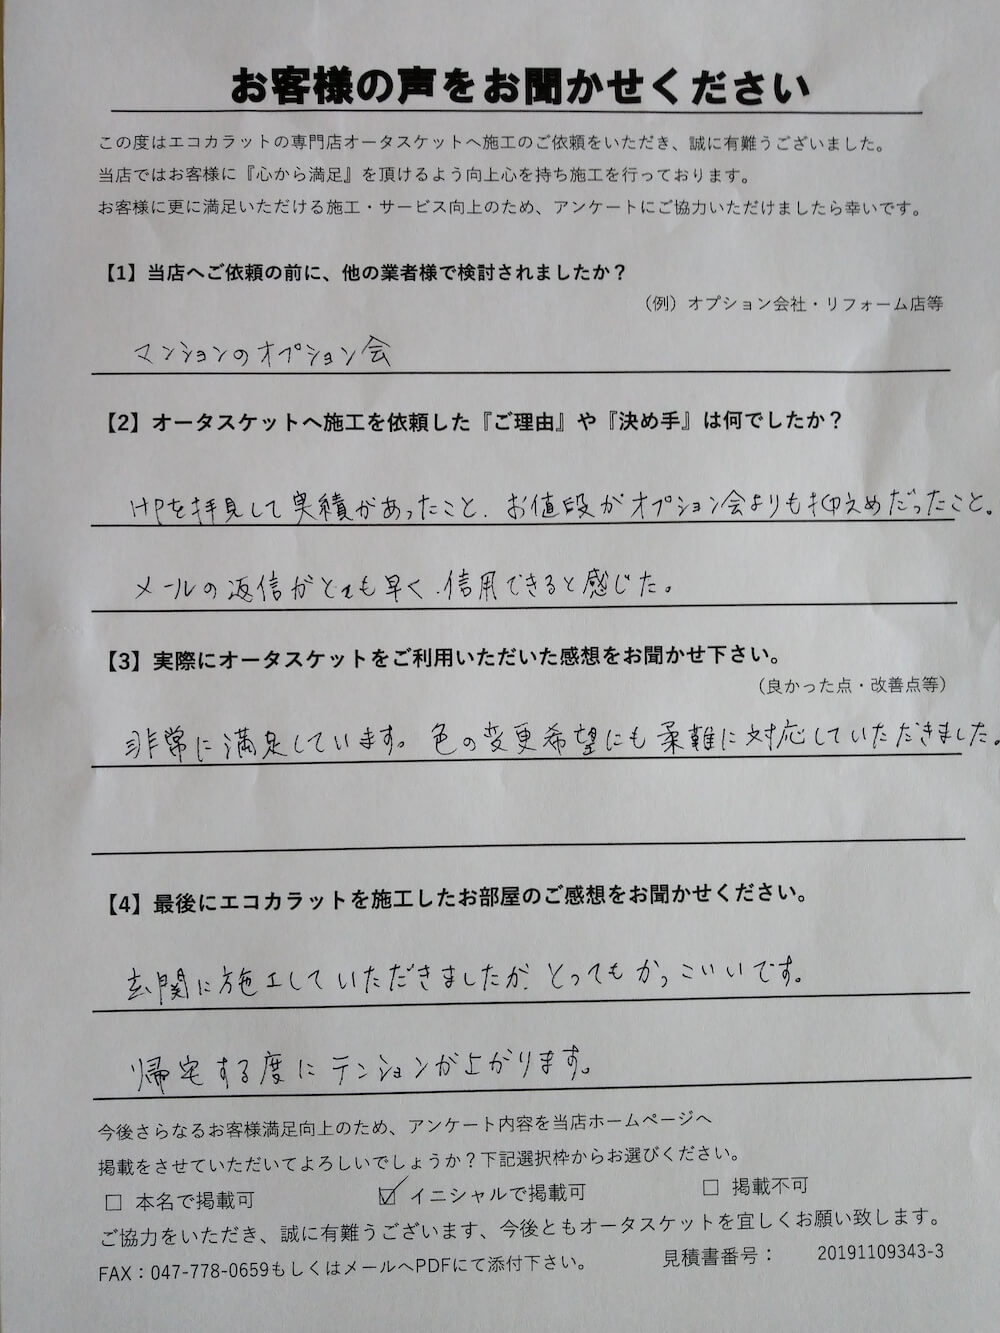 お客様の声をお聞かせください
この度はエコカラットの専門店オータスケットへ施工のご依頼をいただき、誠に有難うございました。
当店ではお客様に『心から満足』を頂けるよう向上心を持ち施工を行っております。
お客様に更に満足いただける施工・サービス向上のため、アンケートにご協力いただけましたら幸いです。
【1】当店へご依頼の前に、他の業者様で検討されましたか？
（例）オプション会社・リフォーム店等
マンションのオプション会
【2】オータスケットへ施工を依頼した『ご理由』や『決め手』は何でしたか？
HPを拝見して実績があったこと、お値段がオプション会よりも抑えめだったこと。
メールの返信がとても早く、信用できると感じた。
【3】実際にオータスケットをご利用いただいた感想をお聞かせ下さい。
（良かった点・改善点等）
非常に満足しています。色の変更希望にも柔難に対応していただきました。
【4】最後にエコカラットを施工したお部屋のご感想をお聞かせください。
玄関に施工していただきましたが、とってもかっこいいです。
帰宅する度にテンションが上がります。
今後さらなるお客様満足向上のため、アンケート内容を当店ホームページへ
掲載をさせていただいてよろしいでしょうか？下記選択枠からお選びください。
□ 本名で掲載可 ☑ イニシャルで掲載可 □ 掲載不可
ご協力をいただき、誠に有難うございます、今後ともオータスケットを宜しくお願い致します。
FAX：047-778-0659もしくはメールへPDFにて添付下さい。 見積書番号： 20191109343-3